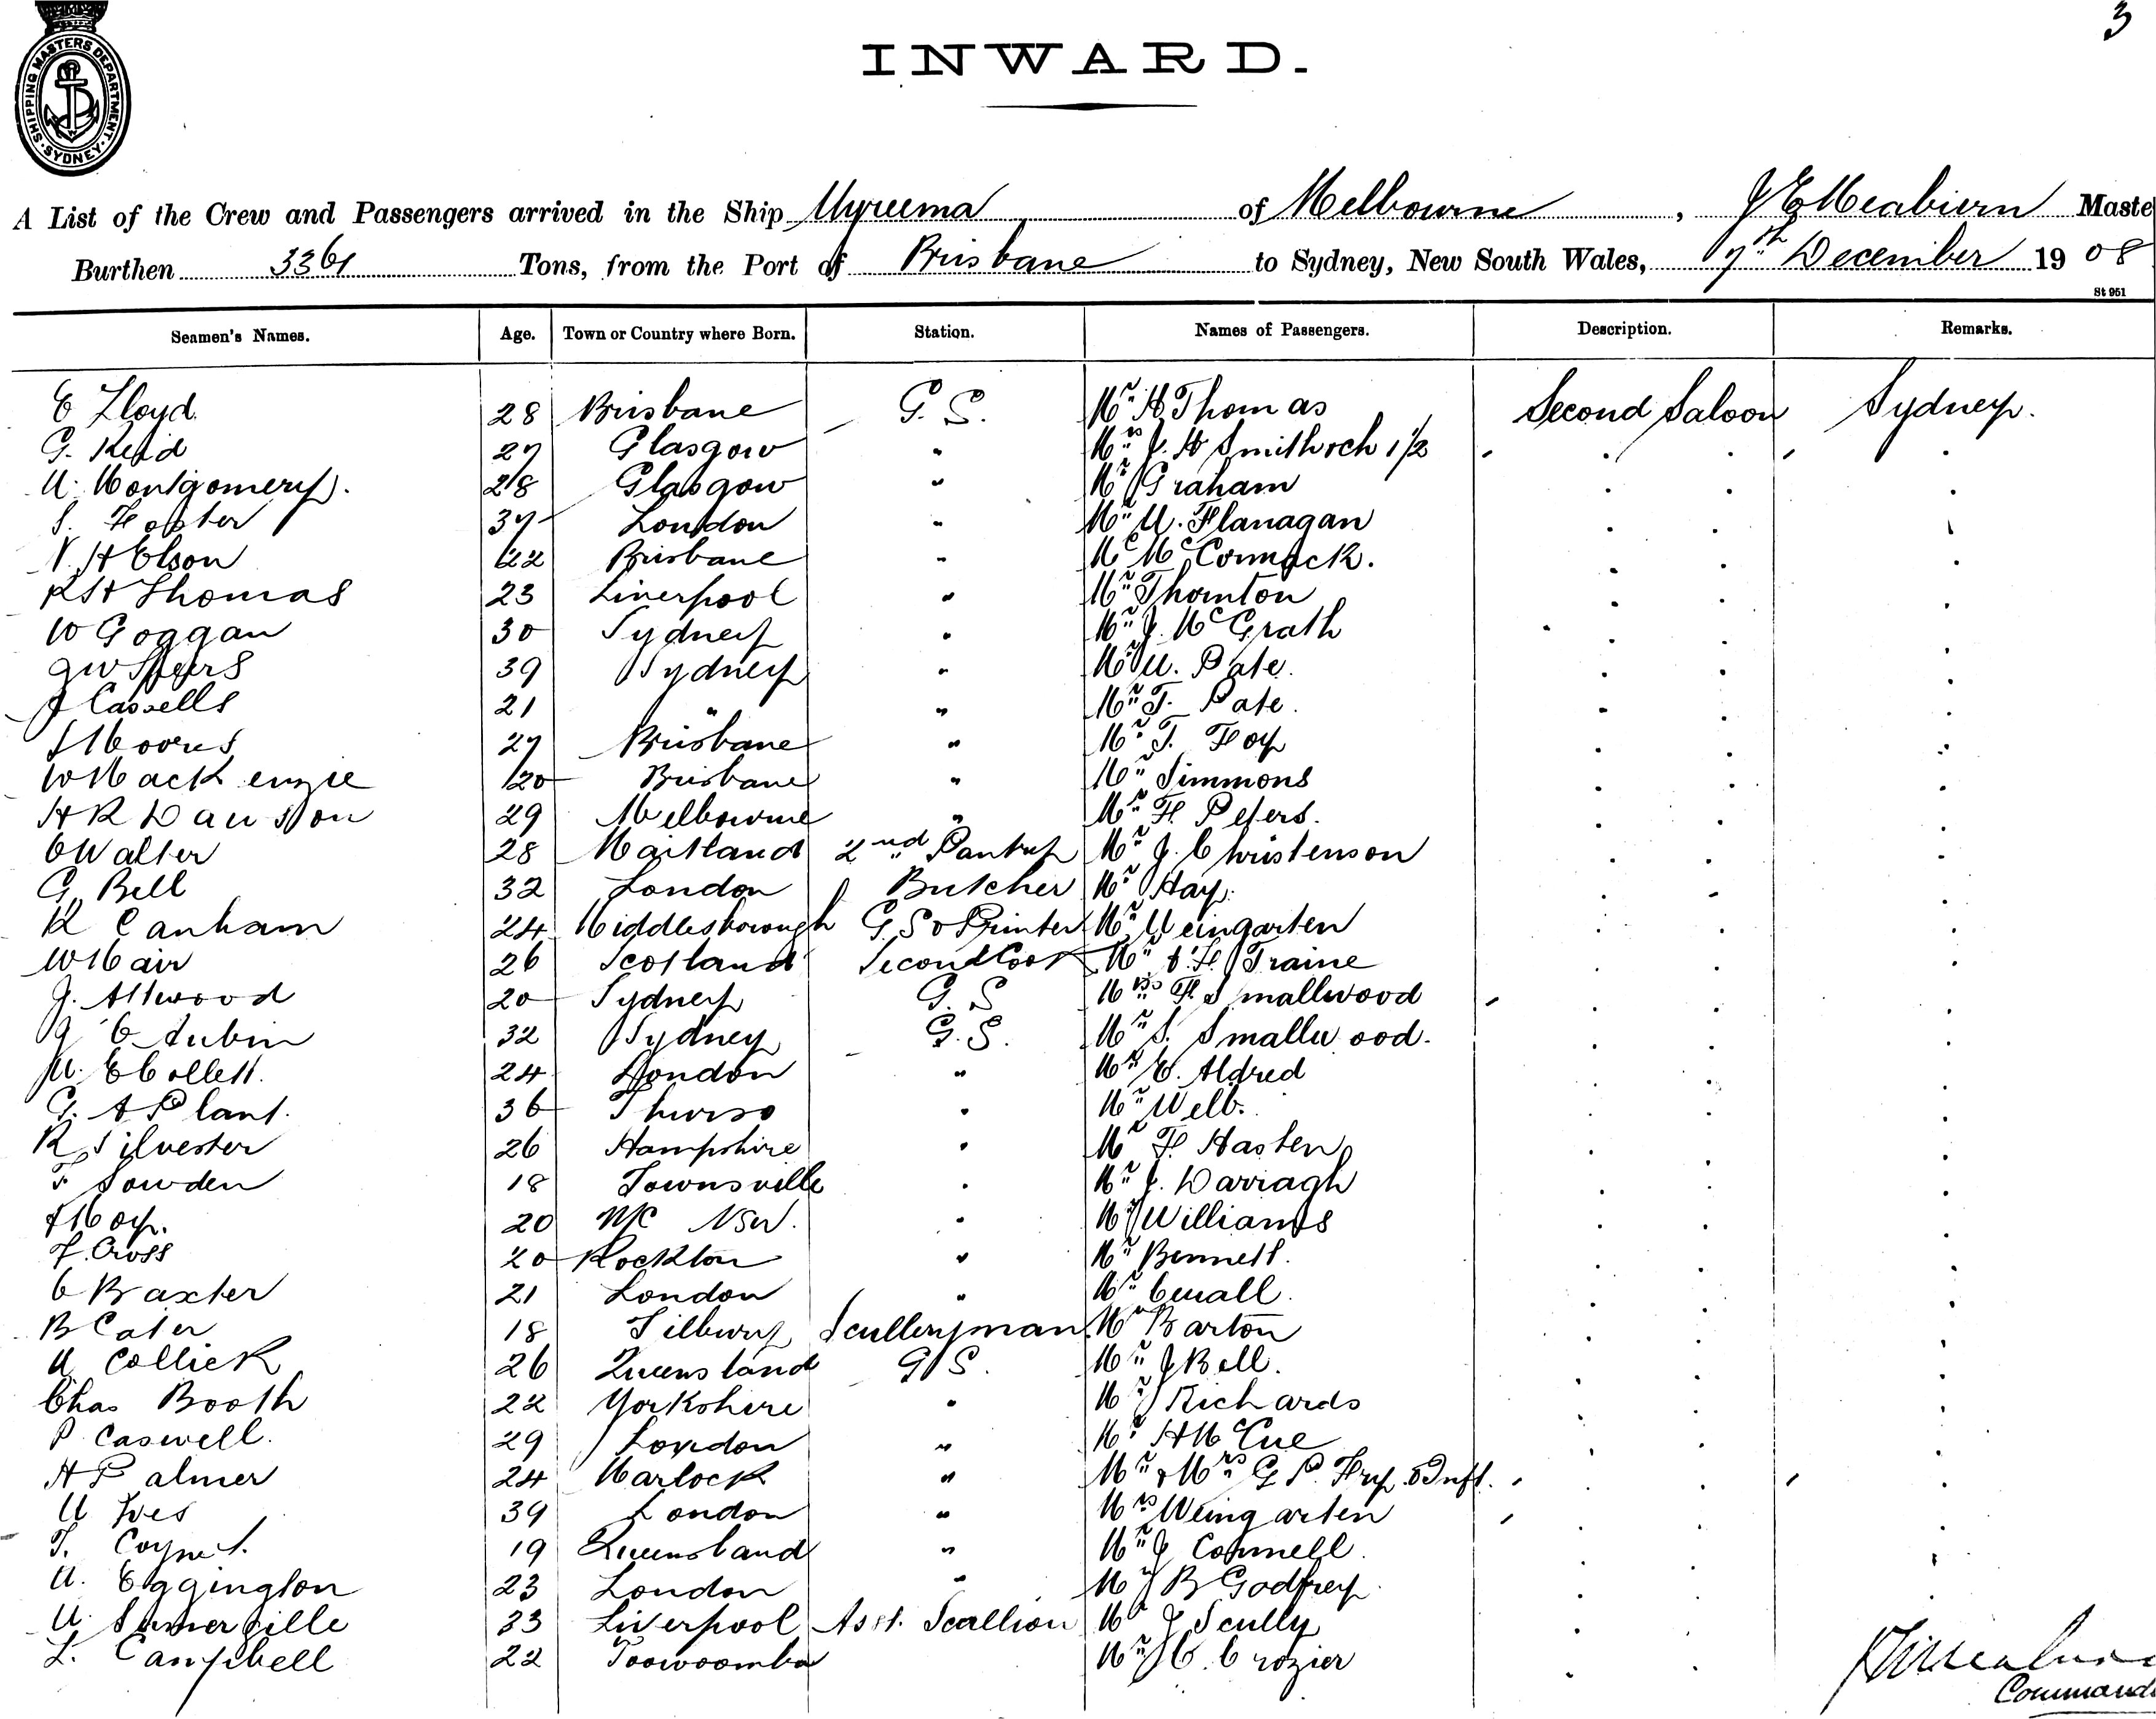 3
SHIPPING MASTERS DEPARTMENT. SYDNEY.
INWARD.
A List of the Crew and Passengers arrived in the Ship Wyreema of Melbourne, Maste
Burthen 3361 Tons, from the Port of Brisbane to Sydney, New South Wales, 7th December 1908
St 951
Seamen's Names. Age. Town or Country where Born. Station. Names of Passengers. Description. Remarks.
E Lloyd. 28 Brisbane G. S. Mr H Thomas Second Saloon Sydney.
G. Reid 27 Glasgow " Mrs J. H Smith & ch 1/2 " " " "
A. Montgomery. 28 Glasgow " Mr Graham " " "
S. Foster 37 London " Mr W. Flanagan " " "
N. H Elson 22 Brisbane " Mr McCormack. " " "
R H Thomas 23 Liverpool " Mr Thornton " " "
W Goggan 30 Sydney " Mr J. McGrath " " "
G W Speers 39 Sydney " Mr W. Pate. " " "
J Cassells 21 " " Mr T. Pate. " " "
J Moores 27 Brisbane " Mr T. Foy " " "
W Mackenzie 20 Brisbane " Mr Simmons " " "
H R Dawson 29 Melbourne " Mr F Peters. " " "
C Walter 28 Maitland 2nd Pantry Mr J. Christenson " " "
G. Bell 32 London Butcher Mr Hay. " " "
R Canham 24 Middlesborough G. S & Printer Mr Weingarten " " "
W Mair 26 Scotland Second Cook Mr Traine " " "
J. Attwood 20 Sydney G. S Mrs F. Smallwood " " "
G C Aubin 32 Sydney G. S. Mr S. Smallwood. " " "
W. E Collett. 24 London " Mr E. Aldred " " "
G. A Plant. 36 Thurso " Mr Welb. " " "
R Silvester 26 Hampshire " Mr F Hasten " " "
F Sowden 18 Townsville " Mr J. Darragh " " "
J Moy. 20 N/C NSW. " Mr Williams " " "
F. Cross 20 Rockton " Mr Bennett. " " "
C Baxter 21 London " Mr Ewall. " " "
B Cater 18 Tilbury Sculleryman Mr Barton " " "
A Collick 26 Queensland G S. Mr J Bell. " " "
Chas Booth 22 Yorkshire " Mr Richards " " "
P Caswell. 29 London " Mr H McCue " " "
H Palmer 24 Warlock " Mr & Mrs G P. Fry & Inft. " " "
A Ives 39 London " Mrs Weingarten " " "
T. Coyne 19 Queensland " Mr J Connell. " " "
A. Eggington 23 London " Mr B Godfrey. " " "
A. Somerville 33 Liverpool Asst. Scallion Mr J Scully " "
L. Campbell 22 Toowoomba Mr C. Crozier " "
Command